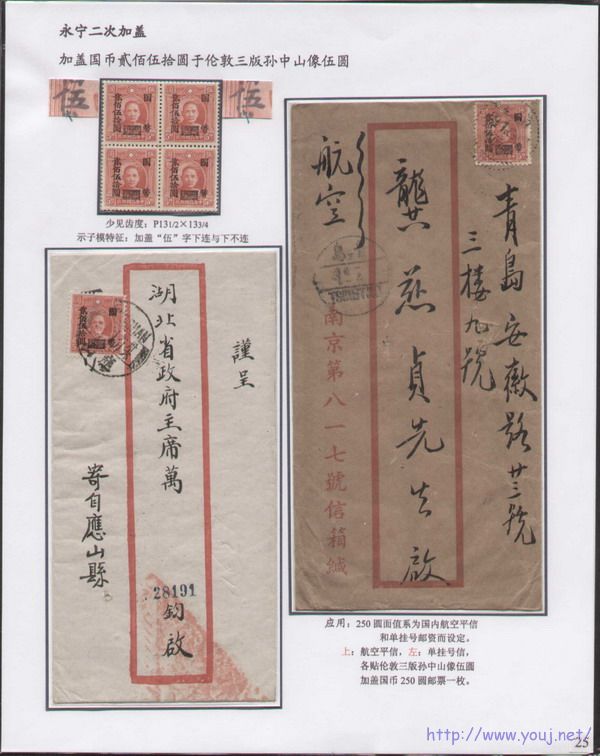 永宁二次加盖
加盖国币贰佰伍拾圆于伦敦三版孙中山像伍圆
伍
伍
国币
贰佰伍拾圆
国币
贰佰伍拾圆
国币
贰佰伍拾圆
国币
贰佰伍拾圆
少见齿度：P131/2×133/4
示子模特征：加盖“伍”字下连与下不连
青島安徽路廿三號
三樓九號
龔慈貞先生啟
航空
南京第八一七號信箱緘
謹呈
湖北省政府主席萬
鈞啟
28191
寄自應山縣
应用：250圆面值系为国内航空平信
和单挂号邮资而设定。
上：航空平信，左：单挂号信，
各贴伦敦三版孙中山像伍圆
加盖国币250圆邮票一枚。
25
http://www.youj.net/